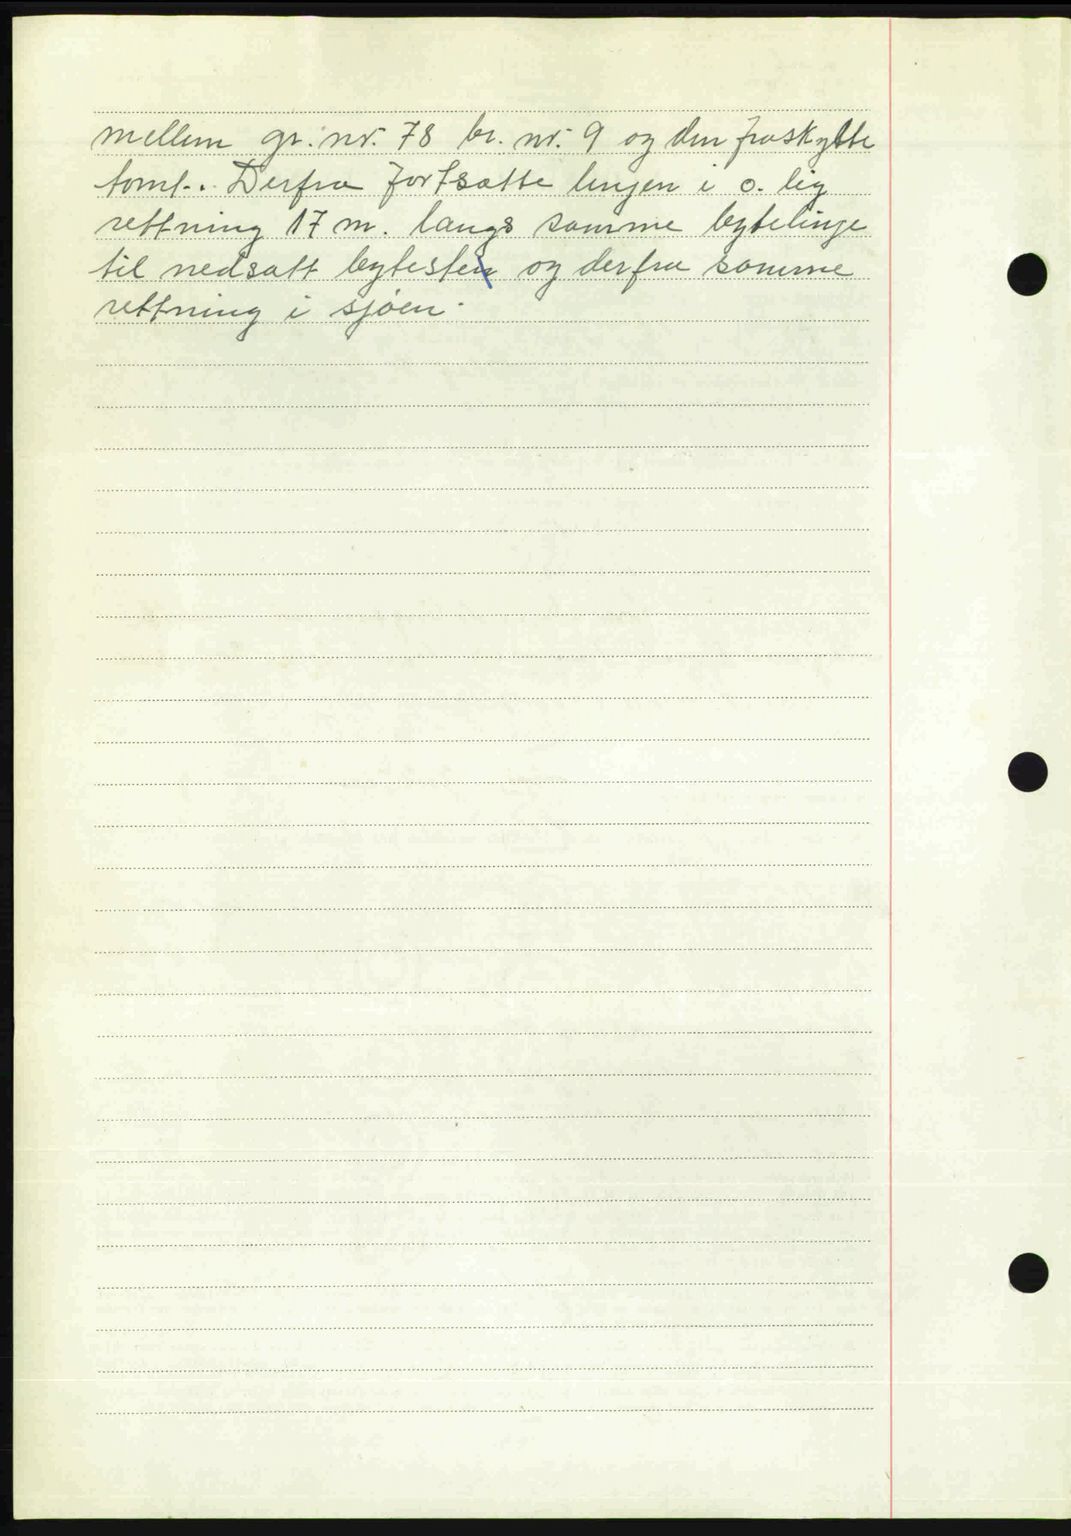 mellem gr. nr. 78 br. nr. 9 og den fraskylte
tomt. Derfra fortsatte linjen i o. lig
rettning 17 m. langs samme bytelinje
til nedsatt bytesten og derfra samme
rettning i sjøen.